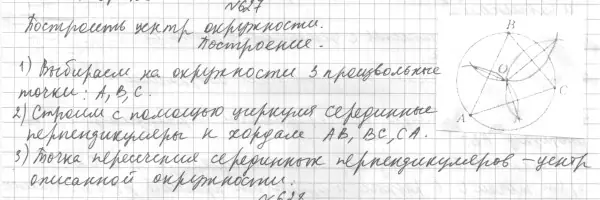 №627
Построить центр окружности.
Построение.
1) Выбираем на окружности 3 произвольные
точки: A, B, C.
2) Строим с помощью циркуля серединные
перпендикуляры к хордам AB, BC, CA.
3) Точка пересечения серединных перпендикуляров – центр
описанной окружности.
№628
B
O
C
A